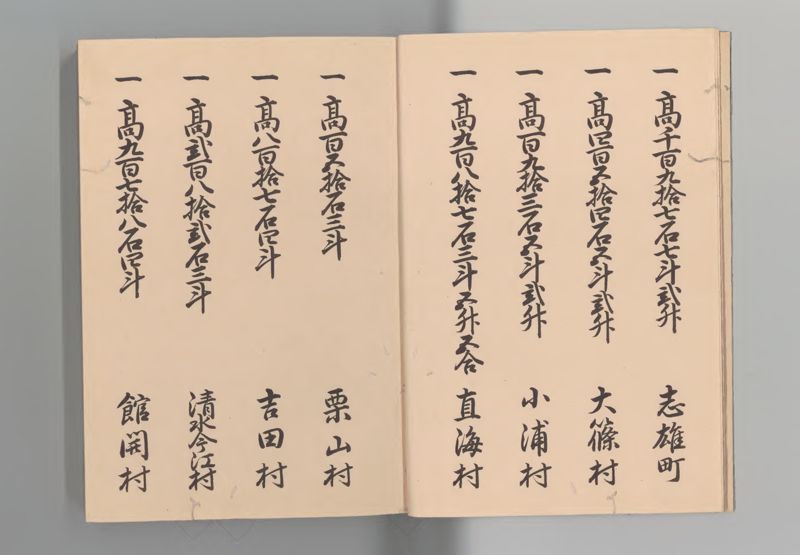 一 高千百九拾七石七斗弐升 志雄町
一 高四百五拾四石五斗弐升 大篠村
一 高百九拾三石五斗弐升 小浦村
一 高九百八拾七石三斗五升五合 直海村
一 高百五拾石三斗 栗山村
一 高八百拾七石四斗 吉田村
一 高弐百八拾弐石三斗 清水今江村
一 高九百七拾八石四斗 館開村